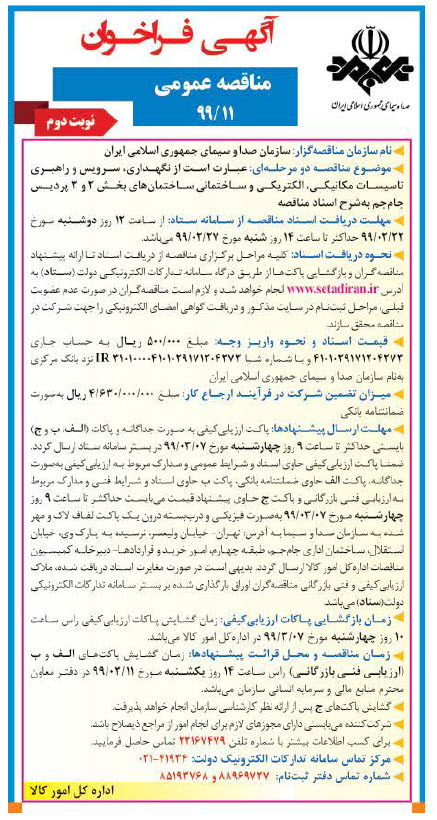 آگهی فراخوان
مناقصه عمومی
۹۹/۱۱
نوبت دوم
صدا و سیمای جمهوری اسلامی ایران
نام سازمان مناقصه‌گزار: سازمان صدا و سیمای جمهوری اسلامی ایران
موضوع مناقصه دو مرحله‌ای: عبارت است از نگهداری، سرویس و راهبری
تاسیسات مکانیکی، الکتریکی و ساختمانی ساختمان‌های بخش ۲ و ۳ پردیس
جام‌جم به‌شرح اسناد مناقصه
مهلت دریافت اسناد مناقصه از سامانه ستاد: از ساعت ۱۲ روز دوشنبه مورخ
۹۹/۰۲/۲۲ حداکثر تا ساعت ۱۴ روز شنبه مورخ ۹۹/۰۲/۲۷ می‌باشد.
نحوه دریافت اسناد: کلیه مراحل برگزاری مناقصه از دریافت اسناد تا ارائه پیشنهاد
مناقصه‌گران و بازگشایی پاکت‌ها از طریق درگاه سامانه تدارکات الکترونیکی دولت (ستاد) به
آدرس www.setadiran.ir انجام خواهد شد و لازم است مناقصه‌گران در صورت عدم عضویت
قبلی، مراحل ثبت‌نام در سایت مذکور و دریافت گواهی امضای الکترونیکی را جهت شرکت در
مناقصه محقق سازند.
قیمت اسناد و نحوه واریز وجه: مبلغ ۵۰۰/۰۰۰ ریال به حساب جاری
۴۱۰۱۰۲۹۱۷۱۲۰۴۲۷۳ و با شماره شبا IR ۳۱۰۱۰۰۰۰۴۱۰۱۰۲۹۱۷۱۲۰۴۲۷۳ نزد بانک مرکزی
به‌نام سازمان صدا و سیمای جمهوری اسلامی ایران
میزان تضمین شرکت در فرآیند ارجاع کار: مبلغ ۴/۶۳۰/۰۰۰/۰۰۰ ریال به‌صورت
ضمانتنامه بانکی
مهلت ارسال پیشنهادها: پاکت ارزیابی‌کیفی به صورت جداگانه و پاکات (الف، ب و ج)
بایستی حداکثر تا ساعت ۹ روز چهارشنبه مورخ ۹۹/۰۳/۰۷ در بستر سامانه ستاد ارسال گردد.
ضمنا پاکت ارزیابی‌کیفی حاوی اسناد و شرایط عمومی و مدارک مربوط به ارزیابی‌کیفی به‌صورت
جداگانه، پاکت الف حاوی ضمانتنامه بانکی، پاکت ب حاوی اسناد و شرایط فنی و مدارک مربوط
به ارزیابی فنی بازرگانی و پاکت ج حاوی پیشنهاد قیمت می‌بایست حداکثر تا ساعت ۹ روز
چهارشنبه مورخ ۹۹/۰۳/۰۷ به‌صورت فیزیکی و دربسته درون یک پاکت لفاف لاک و مهر
شده به سازمان صدا و سیما به آدرس: تهران- خیابان ولیعصر، نرسیده به پارک وی، خیابان
استقلال، ساختمان اداری جام‌جم، طبقه چهارم، امور خرید و قراردادها- دبیرخانه کمیسیون
مناقصات اداره‌کل امور کالا ارسال گردد. بدیهی است در صورت مغایرت اسناد دریافت شده، ملاک
ارزیابی‌کیفی و فنی بازرگانی مناقصه‌گران اوراق بارگذاری شده بر بستر سامانه تدارکات الکترونیکی
دولت(ستاد) می‌باشد.
زمان بازگشایی پاکات ارزیابی‌کیفی: زمان گشایش پاکات ارزیابی‌کیفی راس ساعت
۱۰ روز چهارشنبه مورخ ۹۹/۳/۰۷ در اداره‌کل امور کالا می‌باشد.
زمان مناقصه و محل قرائت پیشنهادها: زمان گشایش پاکت‌های الف و ب
(ارزیابی فنی بازرگانی) راس ساعت ۱۴ روز یکشنبه مورخ ۹۹/۰۳/۱۱ در دفتر معاون
محترم منابع مالی و سرمایه انسانی سازمان می‌باشد.
گشایش پاکت‌های ج پس از ارائه نظر کارشناسی سازمان انجام خواهد پذیرفت.
شرکت‌کننده می‌بایستی دارای مجوزهای لازم برای انجام امور از مراجع ذیصلاح باشد.
برای کسب اطلاعات بیشتر با شماره تلفن ۲۲۱۶۷۴۷۹ تماس حاصل فرمایید.
مرکز تماس سامانه تدارکات الکترونیک دولت: ۴۱۹۳۴-۰۲۱
شماره تماس دفتر ثبت‌نام: ۸۸۹۶۹۷۳۷ و ۸۵۱۹۳۷۶۸
اداره کل امور کالا